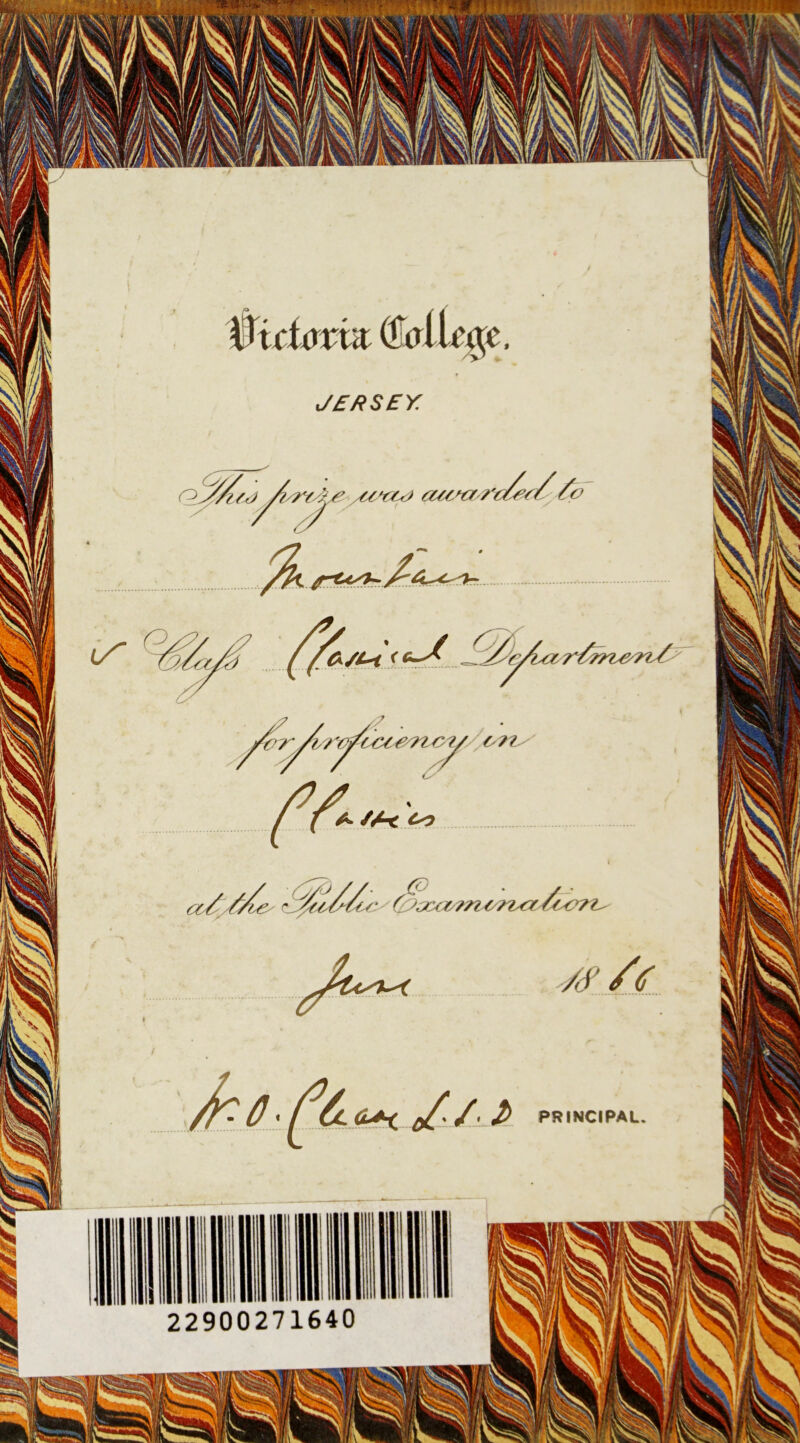 Victoria College,
JERSEY.
This prize was awarded to
Mountain
V Class Classical Department
for proficiency in
Classics
at the Public Examination
June 1866
W. O. Cleave L.L.D PRINCIPAL.
22900271640